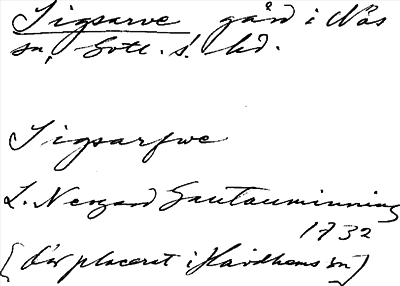 Sigsarve gård i Näs
sn, Gotl. s. hd.
Sigsarfwe
L. Nergard Gautauminning
1732
[där placerat i Havdhems sn]